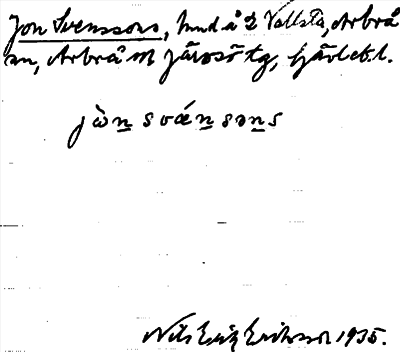 Jon Svenssons, hmd å 2 Vallsta, Arbrå
sn, Arbrå o Järvsö tg, Gävleb.l.
jòn sváensəns
Nils Erik Eriksson 1935.